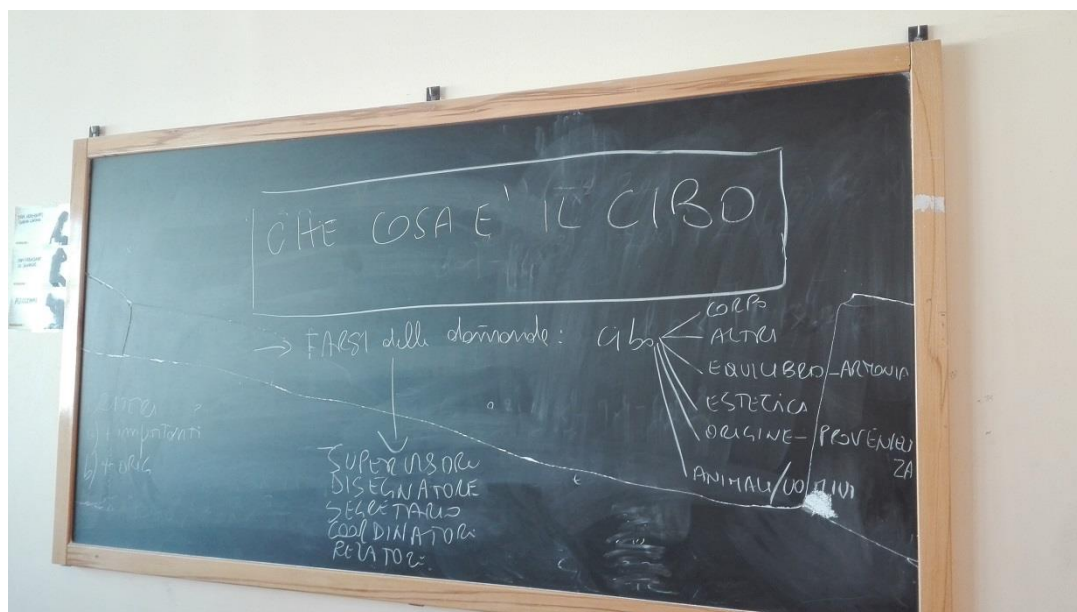 CHE COSA E' IL CIBO
→ FARSI delle domande: cibo
CORPO
ALTRI
EQUILIBRO - ARMONIA
ESTETICA
ORIGINE - PROVENIEN
ZA
ANIMALI/UOMINI
SUPERVISORE
DISEGNATORE
SEGRETARIO
COORDINATORE
RELATORE.
a) + importanti
b) + ORIG